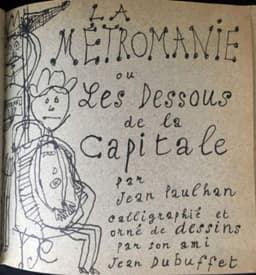 LA
MÉTROMANIE
ou
Les Dessous
de la
capitale
par
Jean Paulhan
calligraphié et
orné de dessins
par son ami
Jean Dubuffet